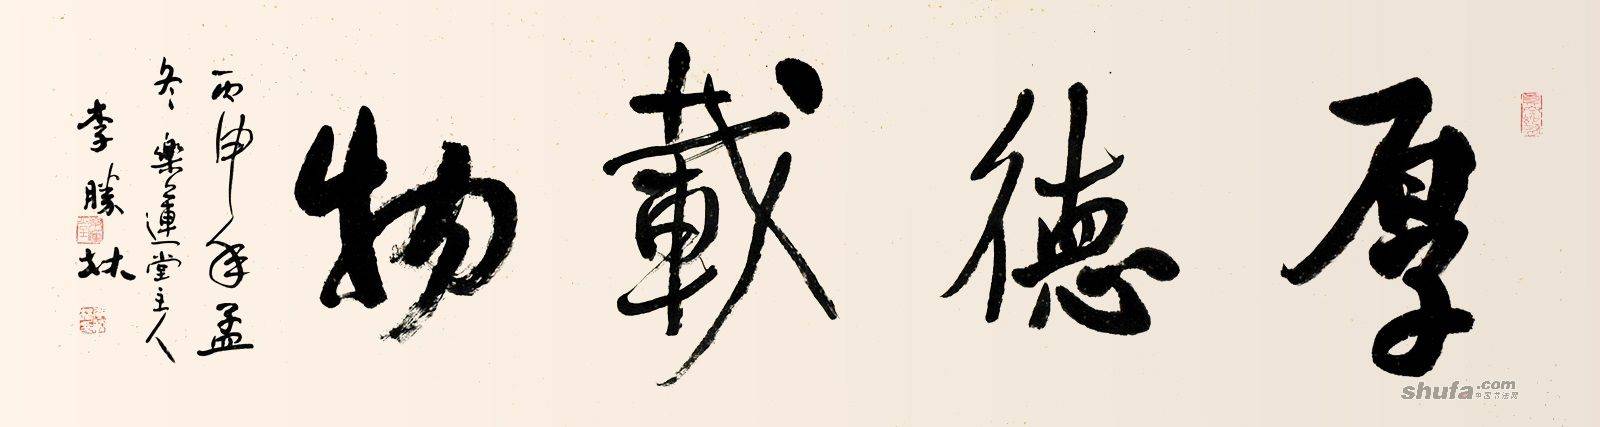 厚德載物
丙申年孟
冬樂運堂主人
李勝林
shufa.com
中国书法网